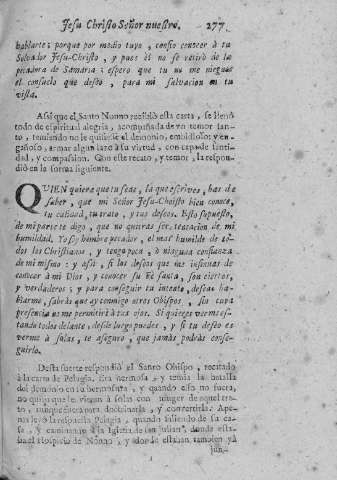 Jesu Christo Señor nuestro. 277
hablarte; porque por medio tuyo, confio conocer à tu
Salvador Jesu-Christo, y pues èl no se retirò de la
pecadora de Samaria; espero que tu no me niegues
el consuelo que deseo, para mi salvacion en tu
vista.
Assi que el Santo Nonno recibiò esta carta, se llenò
todo de espiritual alegria, acompañada de vn temor san-
to, temiendo no le quisiesse el demonio, embidioso, y en-
gañoso, armar algun lazo à su virtud, con capa de santi-
dad, y compassion. Con este recato, y temor, la respon-
diò en la forma siguiente.
QUIEN quiera que tu seas, la que escrives, has de
saber, que mi Señor Jesu-Christo bien conoce,
tu calidad, tu trato, y tus deseos. Esto supuesto,
de mi parte te digo, que no quieras ser, tentacion de mi
humildad. Yo soy hombre pecador, el mas humilde de to-
dos los Christianos, y tengo poca, ò ninguna confianza
de mi mismo; y assi, si los deseos que me insinuas de
conocer à mi Dios, y conocer su Fè santa, son ciertos,
y verdaderos; y para conseguir tu intento, deseas ha-
blarme, sabràs que ay conmigo otros Obispos, sin cuya
presencia no me permitirà à tus ojos. Si quieges verme es-
tando todos delante, desde luego puedes, y si tu deseo es
verme à solas, te asseguro, que jamàs podràs conse-
guirlo.
Desta suerte respondiò el Santo Obispo, recatado
à la carta de Pelagia. Era hermosa, y temia la batalla
del demonio con su hermosura, y quando esto no fuera,
no quiso que le vieran à solas con muger de aquel tra-
to, aunque fuera para doctrinarla, y convertirla. Ape-
nas leyò la respuesta Pelagia, quando saliendo de su ca-
sa, y caminando à la Iglesia de San Julian, donde esta-
ba el Hospicio de Nonno, y adonde estaban tambien ya
jun-